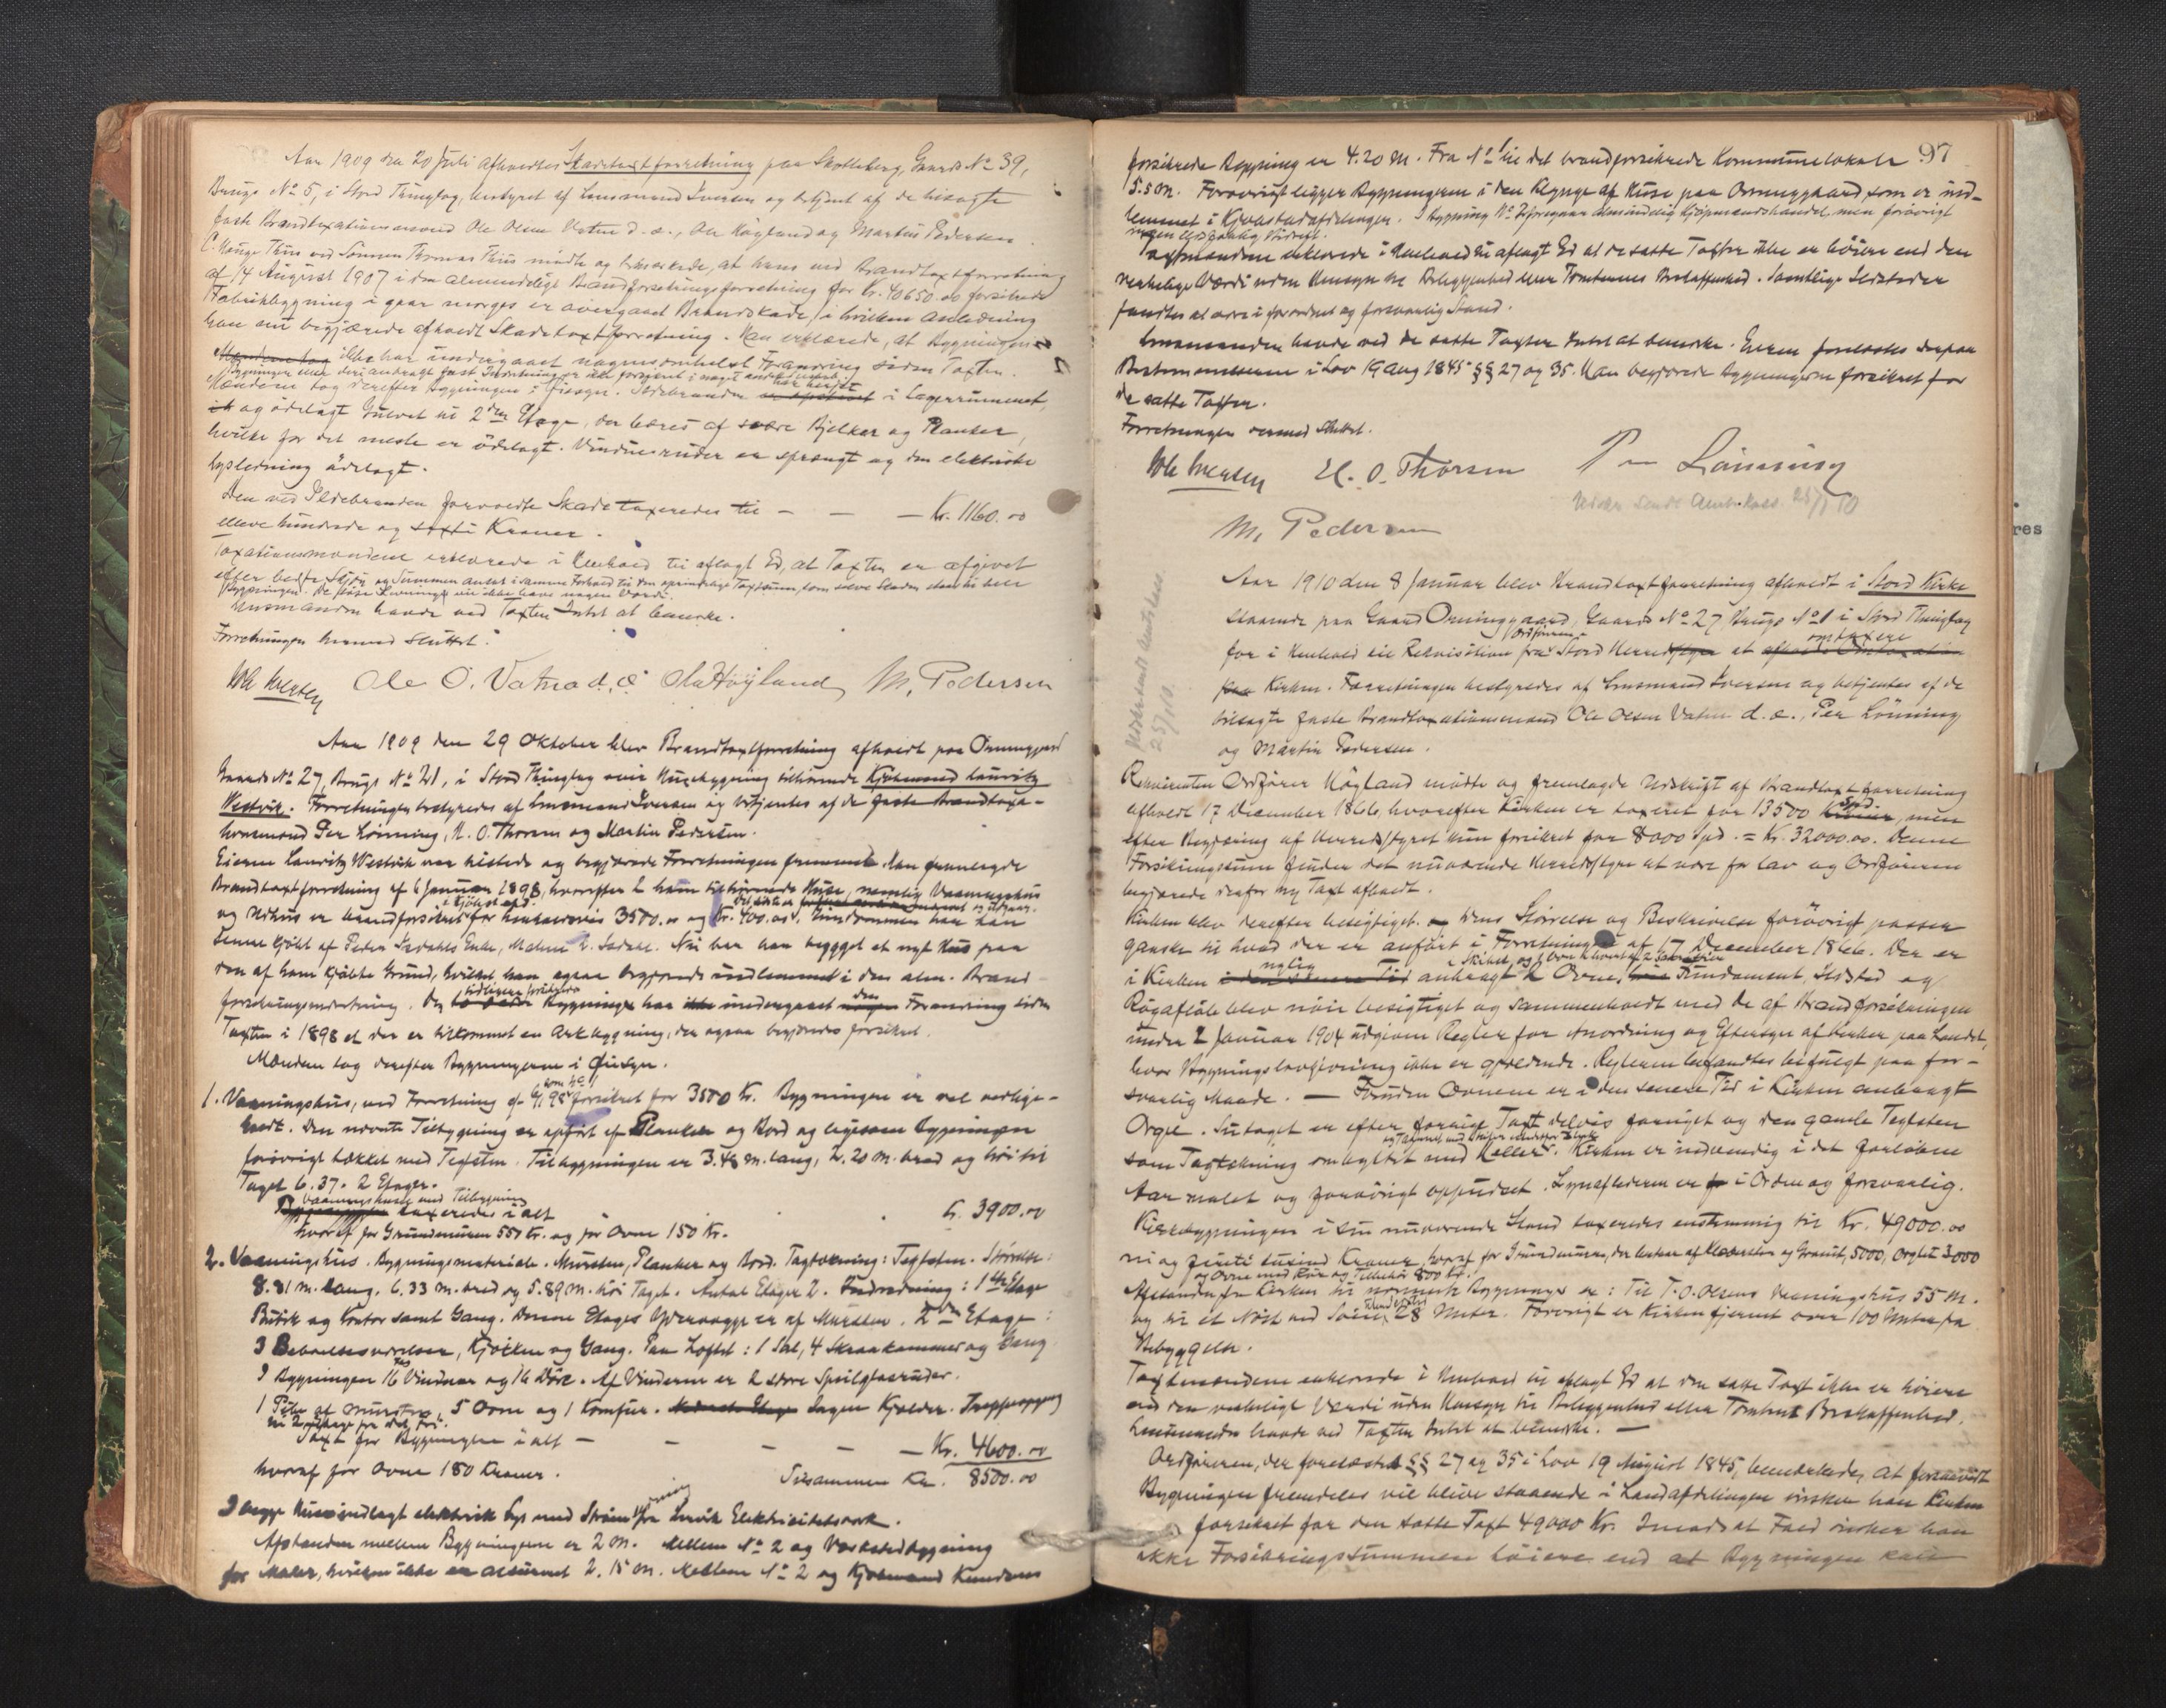 Aar 1909 den 20 Juli afholdtes Skadetaxtforretning paa Skotteberg, Gaards No 39,
Brugs No 5, i Stord Thinglag, bestyret af Lensmand Iversen og betjent af de
faste Brandtaxationsmænd Ole Olsen Vatna d. æ., Ole Høyland og Martin Pedersen.
ved Sønnen Thomas Thuis mødte og bemærkede, at hans ved Brandtaxtforretning
af 14 August 1907 i den almindelige Brandforsikringsforretning for Kr. 40650.00 forsikrede
Fabrikbygning i gaar morges er overgaaet Brandskade, i hvilken Anledning
han nu begjærede afholdt Skadetaxtforretning. Han erklærede, at Bygningen
ikke har undergaaet nogensomhelst Forandring siden Taxten.
Mændene tog derefter Bygningen i Øiesyn. Ildebranden har herjet i Lagerrummet,
og ødelagt Gulvet til 2den Etage, der bæres af svære Bjelker og Planker,
hvilke for det meste er ødelagt. Vinduesruder er sprængt og den elektriske
lysledning ødelagt.
Den ved Ildebranden forvoldte Skade taxeredes til — — — Kr. 1160.00
elleve hundrede og sexti Kroner.
Taxationsmændene erklærede i Henhold til aflagt Ed, at Taxten er afgivet
efter bedste Skjøn og Summen ansat i samme Forhold til den oprindelige Taxtsum, som selve Skaden staar til hele
Bygningen. De løse Levninger vil ikke have nogen Værdi.
Lensmanden havde ved Taxten Intet at bemerke.
Forretningen hermed Sluttet.
Ole Iversen Ole O. Vatna d. æ. Ola Høyland M. Pedersen
Aar 1909 den 29 Oktober blev Brandtaxtforretning afholdt paa Orninggaard
Gaards No 27, Brugs No 21, i Stord Thinglag over Husebygning tilhørende Kjøbmand Lauritz
Westvik. Forretningen bestyredes af Lensmand Iversen og betjentes af de faste Brandtaxa-
tionsmænd Per Lønning, H. O. Thorsen og Martin Pedersen.
Eieren Lauritz Westvik var tilstede og begjærede Forretningen fremmet. Han fremlagde
Brandtaxtforretning af 6 Januar 1898, hvorefter 2 ham tilhørende Huse, nemlig Vaaningshus
og Udhus er brandforsikret for henholdsvis 3500.00 og Kr. 400.00. Eiendommen har han
senere kjøbt af Peder Enke, Malene Nu har han bygget et nyt Hus paa
den af ham kjøbte Grund, hvilket han ogsaa begjærede indlemmet i den alm. Brand-
forsikringsindretning. tidligere forsikrede Bygninger har undergaaet den Forandring siden
Taxten i 1898 at der er tilkommet en Arkbygning, der ogsaa begjæredes forsikret.
Mændene tog derefter Bygningerne i Øiesyn.
1. Vaaningshus, ved Forretning af 6/1 98 som No 1 forsikret for 3500 Kr. Bygningen er vel vedlige-
holdt. Den nævnte Tilbygning er opført af Planker og Bord og ligesom Bygningen
forøvrigt tækket med Teglsten. Tilbygningen er 3.48 m. lang, 2.20 m. bred og høi til
Taget 6.37. 2 Etager.
Vaaningshuset med Tilbygning taxeredes i alt Kr. 3900.00
hvoraf for Grundmuren 550 Kr. og for Ovne 150 Kr.
2. Vaaningshus. Bygningsmateriale. Mursten, Planker og Bord. Tagtækning: Teglsten. Størrelse:
8.81 m. lang, 6.33 m. bred og 5.89 m. høi til Taget. Antal Etager 2. Indredning: 1ste Etage
Butik og Kontor samt Gang. Denne Etages Ydervægge er af Mursten. 2den Etage:
3 Beboelsesværelser, Kjøkken og Gang. Paa Loftet: 1 Sal, 4 Skraakammer og Gang
I Bygningen 16 Fag Vinduer og 16 Døre. Af Vinduerne er 2 store Speilglasruder.
1 Pibe af Mursten, 5 Ovne og 1 Komfur. Ingen Kjælder. Trappeopgang
Taxt for Bygningen i alt — — — — — Kr. 4600.00
hvoraf for Ovne 180 Kroner. Tilsammen Kr. 8500.00
I begge Huse indlagt elektrisk Lys med Strøm fra Elektricitetsverk.
Afstanden mellem Bygningerne er 2 m. Mellem No 2 og Værkstedbygning
for Maler, hvilken ikke er assureret 2.15 m. Mellem No 2 og Kjøbmand Knudsens
97
forsikrede Bygning er 4.20 m. Fra No 1 til det brandforsikrede Kommunelokale
5.5 m. Forøvrigt ligger Bygningerne i den Klynge af Huse paa Orninggaard som er ind-
lemmet i Kjøbstadafdelingen. I Bygning No 2 foregaar almindelig Kjøpmandshandel, men forøvrigt
ingen ildsfarlig Bedrift.
Taxtmændene erklærede i Henhold til aflagt Ed at de satte Taxter ikke er høiere end den
virkelige Værdi uden Hensyn til Beliggenhed eller Tomternes Beskaffenhed. Samtlige Ildsteder
fandtes at være i forordnet og forsvarlig Stand.
Lensmanden havde ved de satte Taxter Intet at bemerke. Eieren forelæstes derpaa
Bestemmelserne i Lov 19 Aug 1845 §§ 27 og 35. Han begjærede Bygningerne forsikret for
de satte Taxter.
Forretningen dermed Sluttet.
Ole Iversen H. O. Thorsen Per Lønning
M. Pedersen
Aar 1910 den 8 Januar blev Brandtaxtforretning afholdt i Stord Kirke
staaende paa Gaard Orninggaard, Gaards No 27 Brugs No 1 i Stord Thinglag
for i Henhold til Rekvisition fra Ordføreren i Stord Herred at omtaxere
Kirken. Forretningen bestyredes af Lensmand Iversen og betjentes af de
faste Brandtaxationsmænd Ole Olsen Vatna d. æ., Per Lønning
og Martin Pedersen.
25/1 10.
Rekvirenten Ordfører Høyland mødte og fremlagde Udskrift af Brandtaxtforretning
afholdt 17 December 1866, hvorefter Kirken er taxeret for 13500 Spd., men
efter Begjæring af Herredsstyret kun forsikret for 8000 Spd. = Kr. 32000.00. Denne
Forsikringssum finder det nuværende Herredsstyre at være for lav og Ordføreren
begjærede derfor ny Taxt afholdt.
Kirken blev derefter besigtiget. Dens Størrelse og Beskrivelse forøvrigt passer
ganske til hvad der er anført i Forretningen af 17 December 1866. Der er
i Kirken nylig anbragt 2 Ovne, Fundament, Ildsted og
Røgafløb blev nøie besigtiget og sammenholdt med de af Brandforsikringen
under 2 Januar 1904 udgivne Regler for Anordning og Eftersyn af Kirker paa Landet,
hvor Bygningslovgivning ikke er gjeldende. Reglerne befandtes befulgt paa for-
svarlig Maade. — Foruden Ovnene er i den senere Tid i Kirken anbragt
Orgel. Sutaget er efter forrige Taxt delvis fornyet og den gamle Teglsten
som Tagtækning ombyttet med Heller. Kirken er indvendig i det forløbne
Aar malet og forøvrigt oppudset. Lynaflederen er i Orden og forsvarlig.
Kirkebygningen i sin nuværende Stand taxeredes enstemmig til Kr. 49000.00
ni og firti tusind Kroner, hvoraf for Grundmuren, der bestaar af Klæbersten og Granit, 5000, Orglet 3000
og Ovne med Rør og Tilbehør 800 Kr.
Afstanden fra Kirken til nærmeste Bygninger er: Til T. O. Olsens Vaaningshus 55 m.
og til et Nøst ved Søen 28 Meter. Forøvrigt er Kirken fjernet over 100 Meter fra
Bebyggelse.
Taxtmændene erklærede i Henhold til aflagt Ed at den satte Taxt ikke er høiere
end den virkelige Værdi uden Hensyn til Beliggenhed eller Tomtens Beskaffenhed.
Lensmanden havde ved Taxten Intet at bemerke. —
Ordføreren, der forelæstes §§ 27 og 35 i Lov 19 August 1845, bemærkede, at forsaavidt
Bygningen fremdeles vil blive staaende i Landafdelingen ønsker han Kirken
forsikret for den satte Taxt 49000 Kr. I modsat Fald ønsker han
ikke Forsikringssummen høiere end at Bygningen kan
res